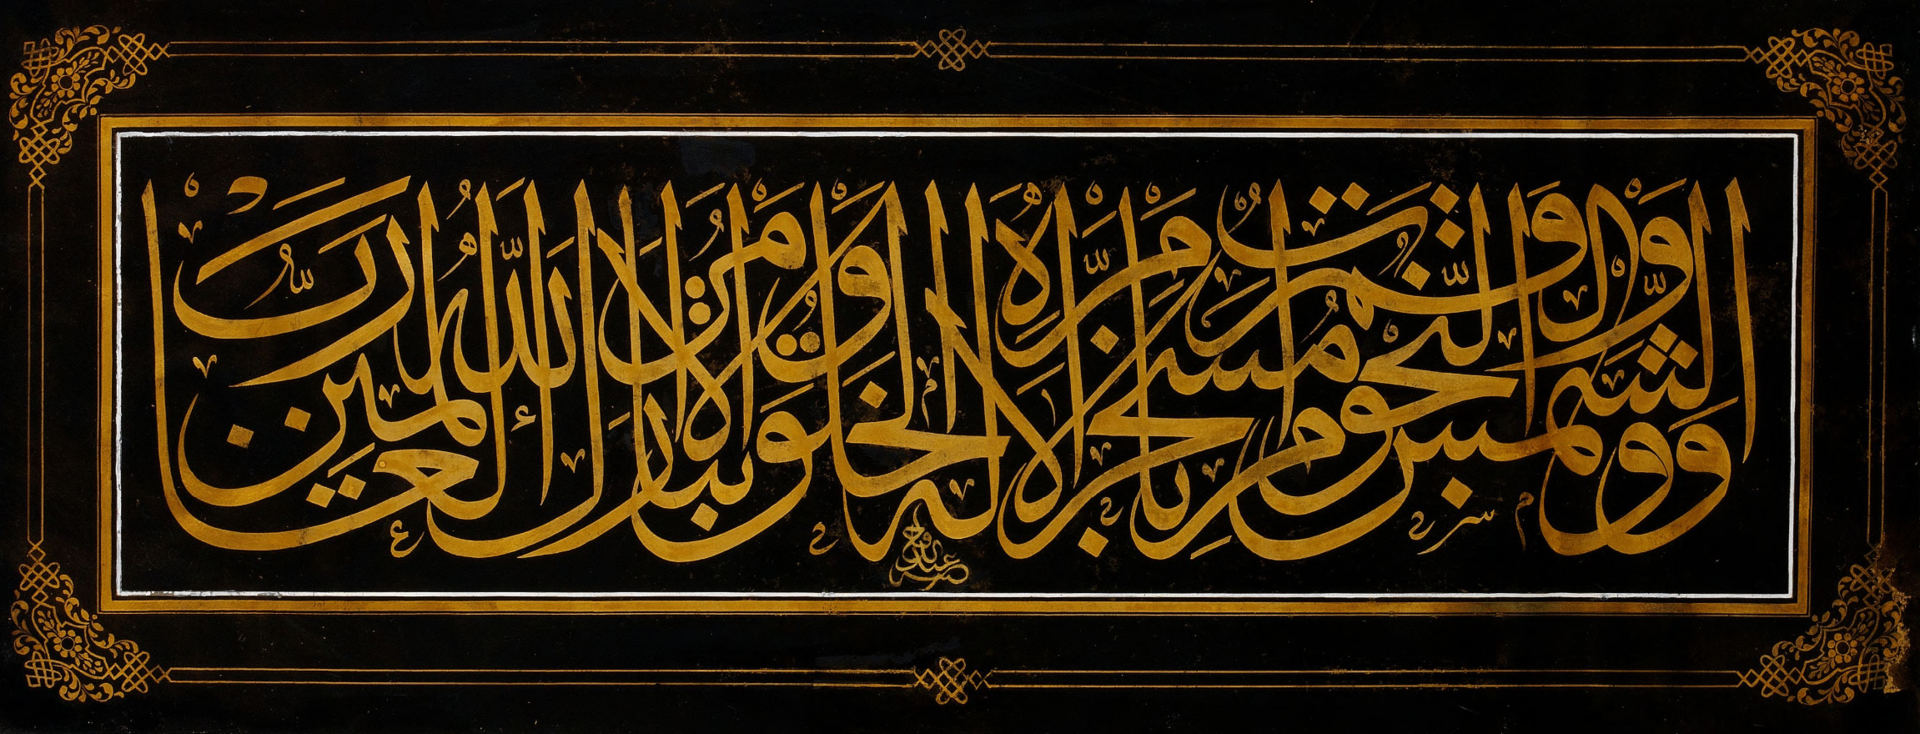 والشمس والقمر والنجوم مسخرات بأمره ألا له الخلق والأمر تبارك الله رب العالمين